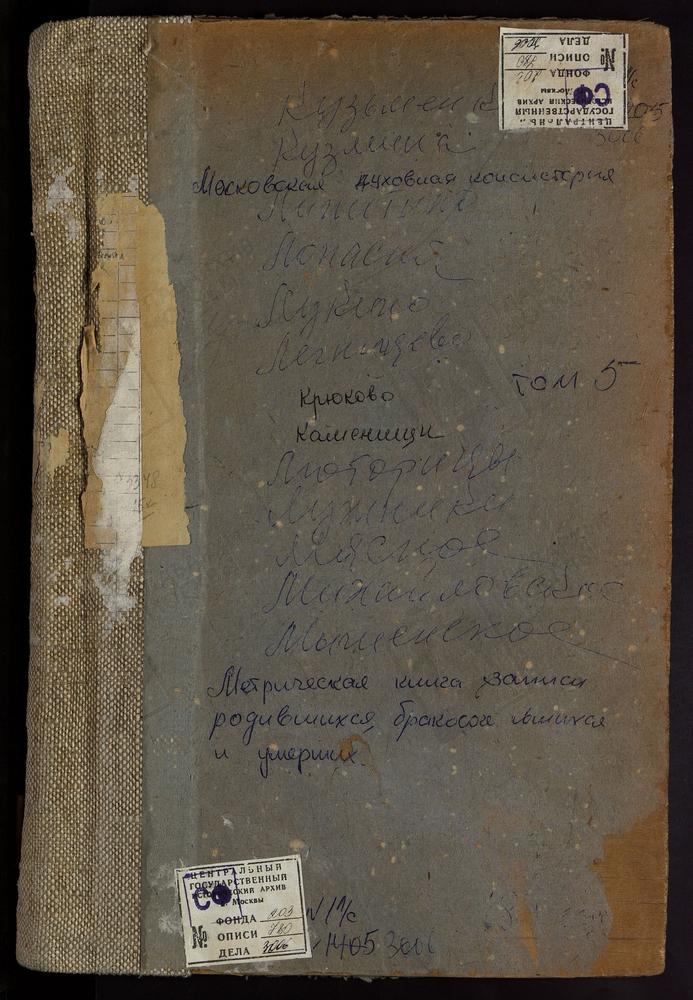 ЦЕНТРАЛЬН
ГОСУДАРСТВЕННЫЙ
ИСТОРИЧЕСКИЙ АРХИВ
Москвы
СФ
ФОНДА 203
№ ОПИСИ 780
ДЕЛА 3006
3006
Кузьмен
Кузмина
Московская духовная консистория
Лопасня
Лукино
том 5
Крюково
Каменищи
Лужники
Мясное
Михайловское
Мышенское
Метрическая книга записи
родившихся, бракосоч вшихся
и умерших.
ЦЕНТРАЛЬНЫЙ
ГОСУДАРСТВЕННЫЙ
ИСТОРИЧЕСКИЙ АРХИВ
г. Москвы
СФ
ФОНДА 203
№ ОПИСИ 780
ДЕЛА 3006
1405 3006